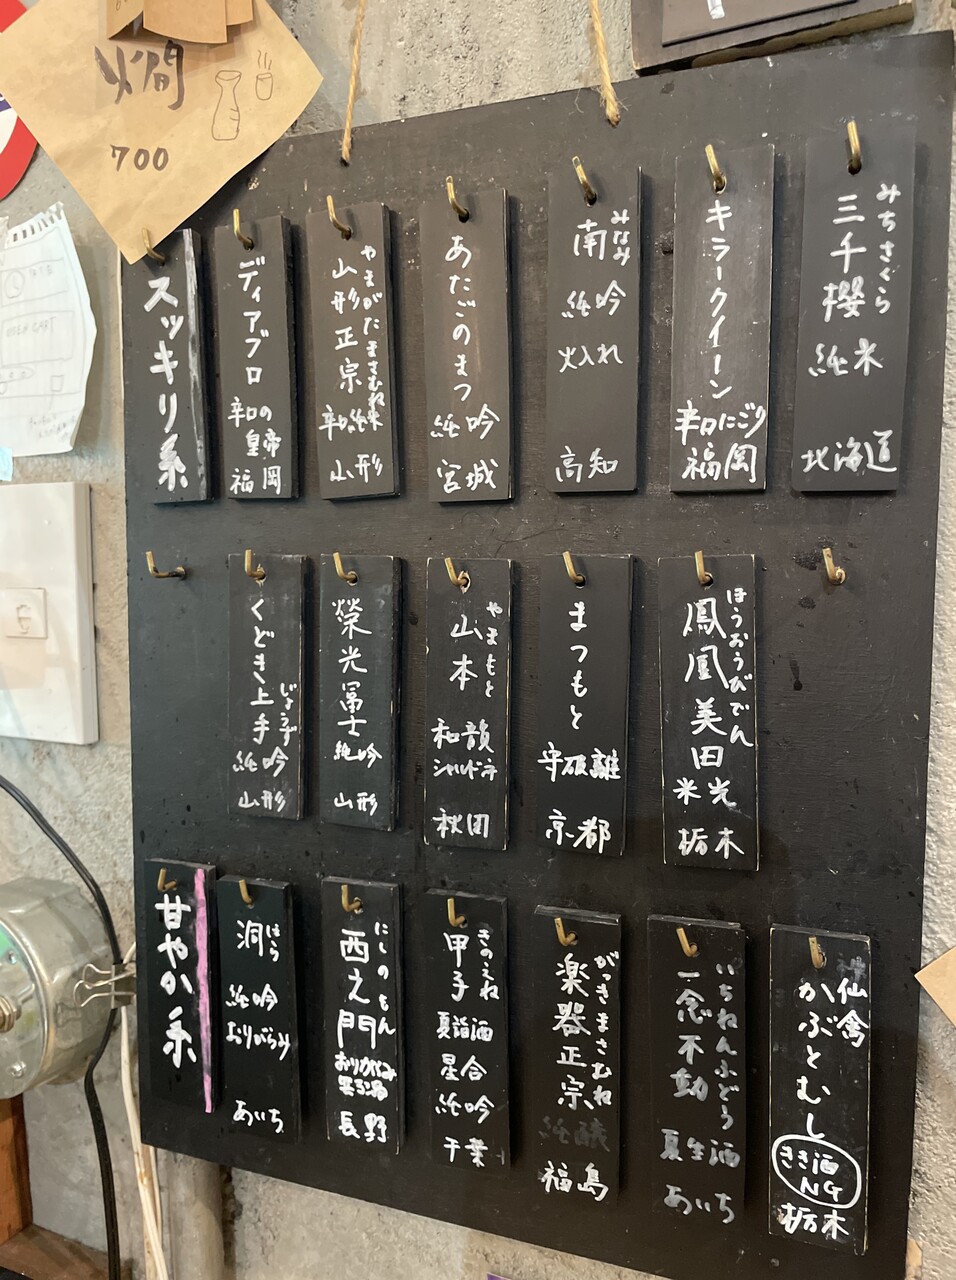 燗
700
スッキリ系
ディアブロ
辛口の
皇帝
福岡
やまがたまさむね
山形正宗
辛口純米
山形
あたごのまつ
純吟
宮城
みなみ
南
純吟
火入れ
高知
キラークイーン
辛口にごり
福岡
みちさくら
三千櫻
純米
北海道
くどき上手
じょうず
純吟
山形
榮光冨士
純吟
山形
やまもと
山本
和韻
シャルドネ
秋田
まつもと
守破離
京都
ほうおうびでん
鳳凰美田
米光
栃木
甘やか系
ほら
洞
純吟
おりがらみ
あいち
にしのもん
西之門
おりがらみ
長野
きのえね
甲子
夏詣酒
星合
純吟
千葉
がっきまさむね
楽器正宗
純醸
福島
いちねんふどう
一念不動
夏生酒
あいち
仙禽
かぶとむし
きき酒
NG
栃木